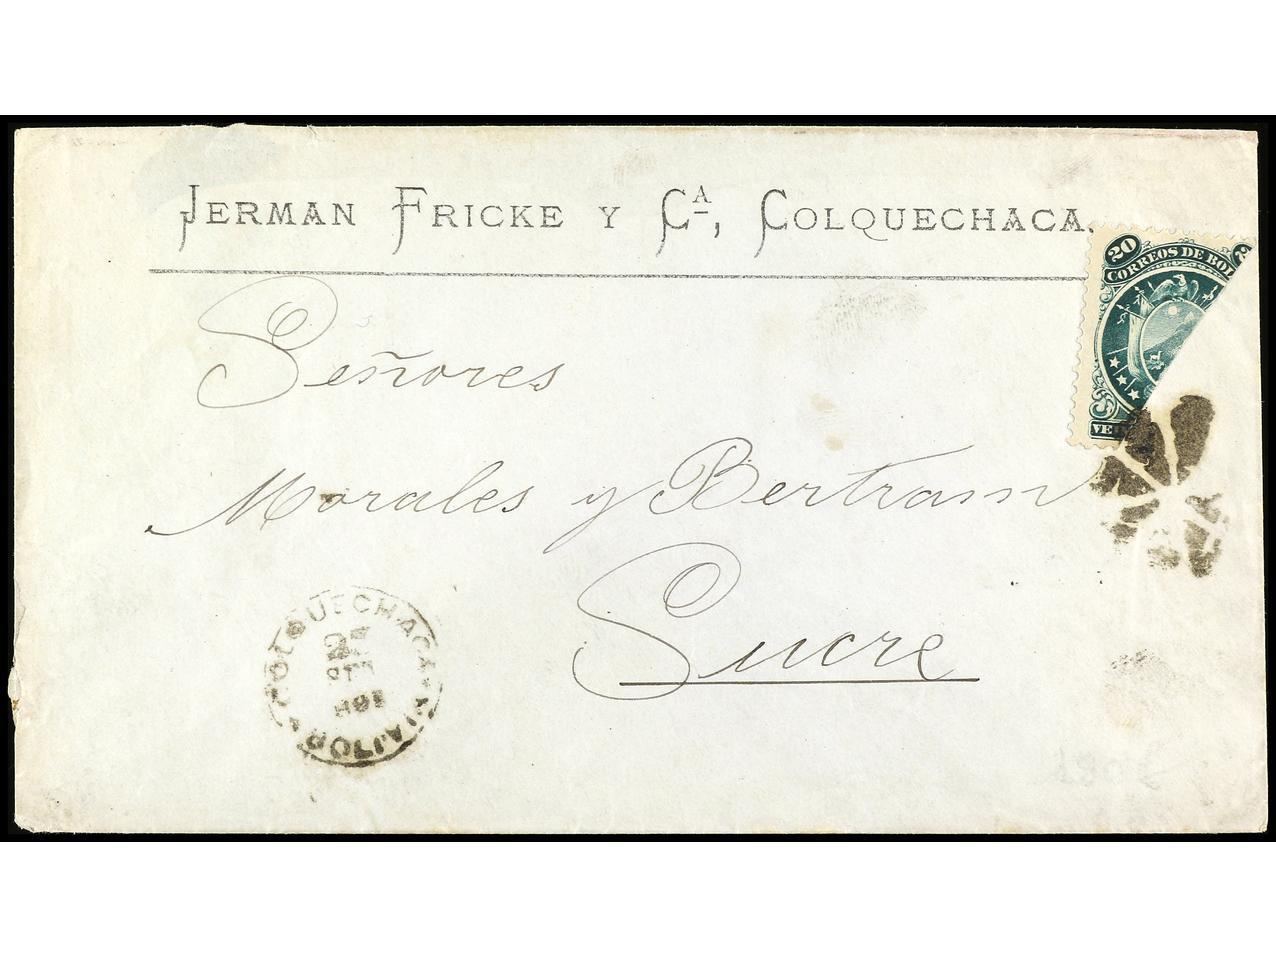 JERMAN FRICKE Y CA, COLQUECHACA.
20
CORREOS DE BOL
Señores
Morales y Bertram
Sucre
COLQUECHACA
BOLIVIA